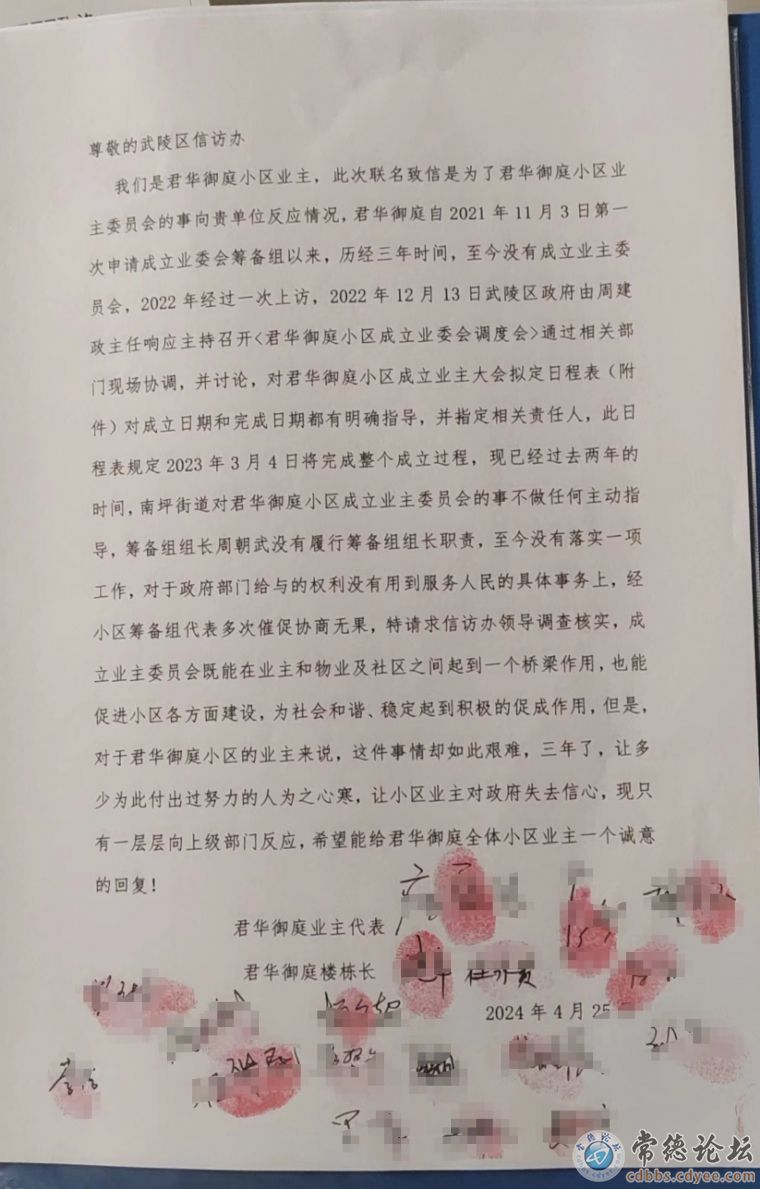 尊敬的武陵区信访办
我们是君华御庭小区业主，此次联名致信是为了君华御庭小区业
主委员会的事向贵单位反应情况，君华御庭自2021年11月3日第一
次申请成立业委会筹备组以来，历经三年时间，至今没有成立业主委
员会，2022年经过一次上访，2022年12月13日武陵区政府由周建
政主任响应主持召开<君华御庭小区成立业委会调度会>通过相关部
门现场协调，并讨论，对君华御庭小区成立业主大会拟定日程表（附
件）对成立日期和完成日期都有明确指导，并指定相关责任人，此日
程表规定2023年3月4日将完成整个成立过程，现已经过去两年的
时间，南坪街道对君华御庭小区成立业主委员会的事不做任何主动指
导，筹备组组长周朝武没有履行筹备组组长职责，至今没有落实一项
工作，对于政府部门给与的权利没有用到服务人民的具体事务上，经
小区筹备组代表多次催促协商无果，特请求信访办领导调查核实，成
立业主委员会既能在业主和物业及社区之间起到一个桥梁作用，也能
促进小区各方面建设，为社会和谐、稳定起到积极的促成作用，但是，
对于君华御庭小区的业主来说，这件事情却如此艰难，三年了，让多
少为此付出过努力的人为之心寒，让小区业主对政府失去信心，现只
有一层层向上级部门反应，希望能给君华御庭全体小区业主一个诚意
的回复！
君华御庭业主代表
君华御庭楼栋长
2024年4月25
常德论坛
cdbbs.cdyee.com